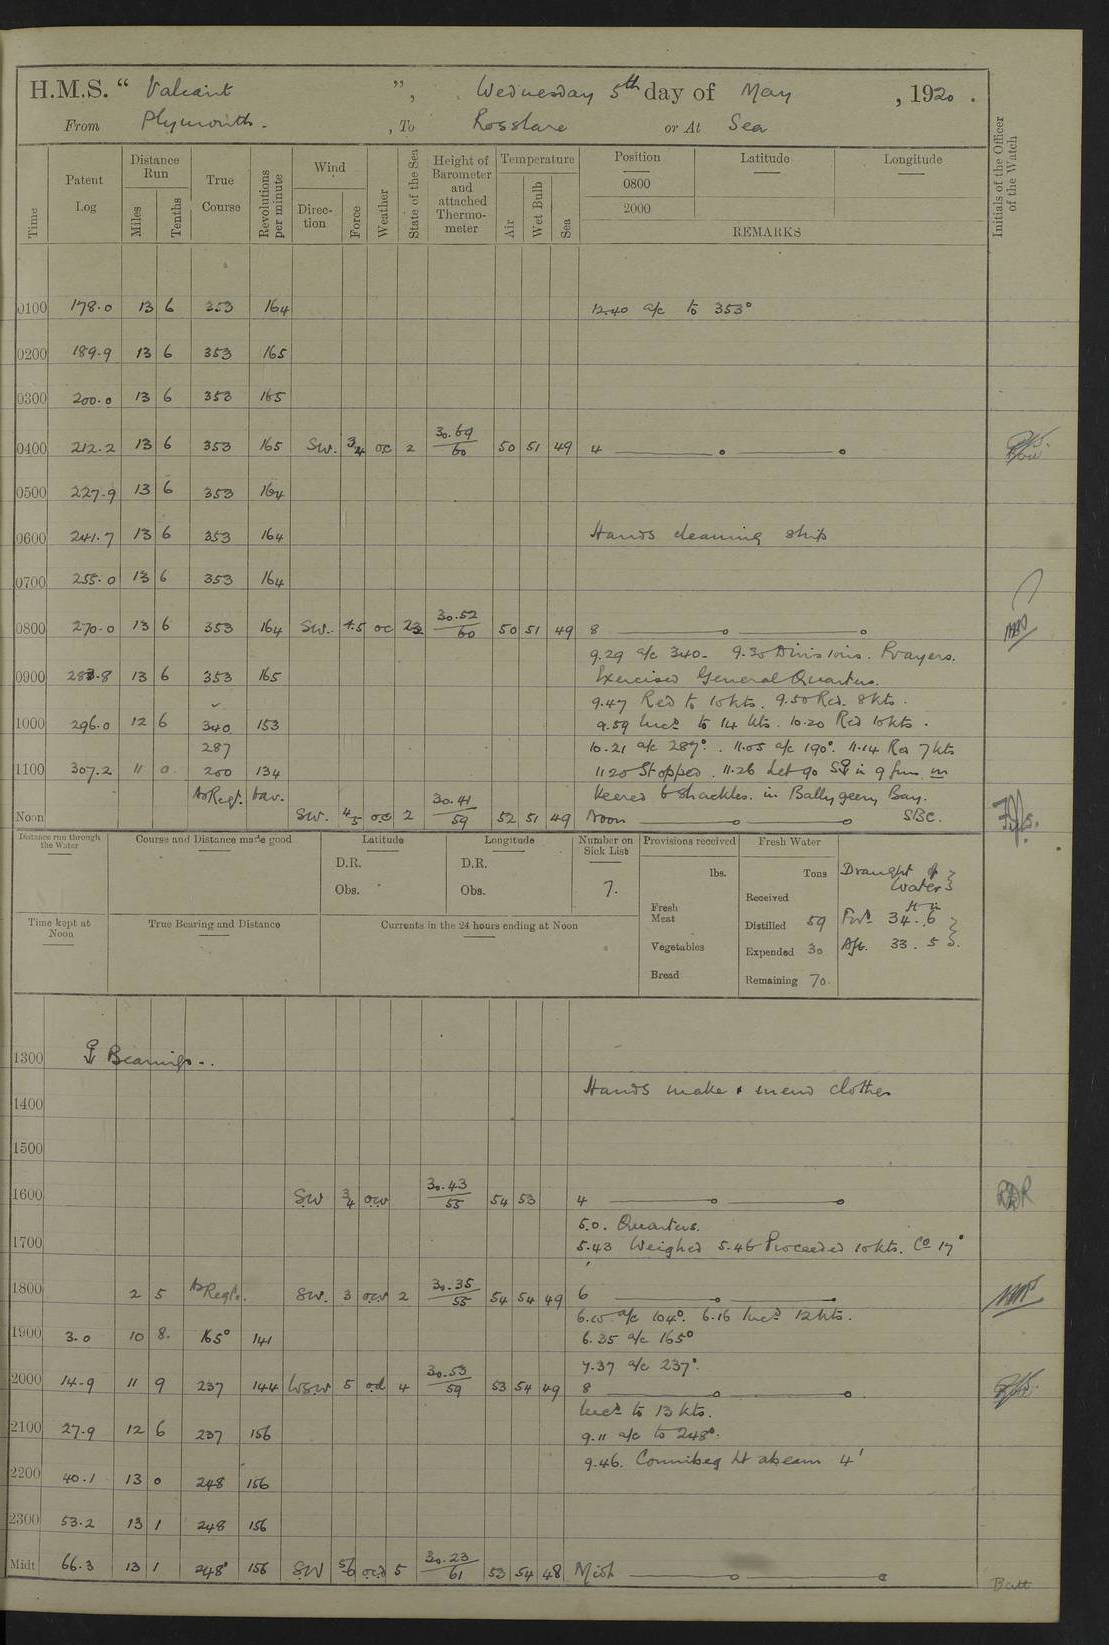 H.M.S. “ Valiant ”, Wednesday 5th day of May , 1920 .
From Plymouth . , To Rosslare or At Sea
Time
Patent Log
Distance Run
Miles
Tenths
True Course
Revolutions per minute
Wind
Direc-tion
Force
Weather
State of the Sea
Height of Barometer and attached Thermo-meter
Temperature
Air
Wet Bulb
Sea
Position Latitude Longitude
0800
2000
REMARKS
Initials of the Officer of the Watch
0100 178.0 13 6 353 164 12.40 a/c to 353°
0200 189.9 13 6 353 165
0300 200.0 13 6 353 165
0400 212.2 13 6 353 165 SW. 3/4 oc 2 30.69/60 50 51 49 4
0500 227.9 13 6 353 164
0600 241.7 13 6 353 164 Hands cleaning ship
0700 255.0 13 6 353 164
0800 270.0 13 6 353 164 SW. 4.5 oc 23 30.52/60 50 51 49 8
9.29 a/c 340. 9.30 Divisions. Prayers.
0900 283.8 13 6 353 165 Exercised General Quarters.
9.47 Red to 10 kts. 9.50 Red. 8 kts.
1000 296.0 12 6 340 153 9.59 Incd to 14 kts. 10.20 Red 10 kts.
287 10.21 a/c 287°. 11.05 a/c 190°. 11.14 Red 7 kts
1100 307.2 11 0 200 134 1120 Stopped. 11.26 Let go in 9 fms
As Reqt. var. Veered 6 shackles. in Ballygeery Bay.
Noon SW. 4/5 oc 2 30.41/59 52 51 49 Noon SBC.
Distance run through the Water
Course and Distance made good
Latitude
D.R.
Obs.
Longitude
D.R.
Obs.
Number on Sick List
7.
Provisions received
lbs.
Fresh Meat
Vegetables
Bread
Fresh Water
Tons
Received
Distilled 59
Expended 30
Remaining 70
Draught of Water
ft in
Ford 34. 6
Aft. 33. 5
Time kept at Noon
True Bearing and Distance
Currents in the 24 hours ending at Noon
1300 Bearings..
Hands make & mend clothes
1400
1500
1600 SW 3/4 ocv 30.43/55 54 53 4 RDR
5.0. Quarters.
1700 5.43 Weighed 5.46 Proceeded 10 kts. Co 17°
1800 2 5 As Reqt. SW. 3 ocv 2 30.35/55 54 54 49 6
6.15 a/c 104°. 6.16 Incd 12 kts.
1900 3.0 10 8. 165° 141 6.35 a/c 165°
7.37 a/c 237°.
2000 14.9 11 9 237 144 WSW 5 od 4 30.53/59 53 54 49 8
Incd to 13 kts.
2100 27.9 12 6 237 156 9.11 a/c to 248°.
9.46. Connibeg Lt abeam 4'
2200 40.1 13 0 248 156
2300 53.2 13 1 248 156
Midt 66.3 13 1 248° 156 SW 5/6 ocd 5 30.23/61 53 54 48 Midt